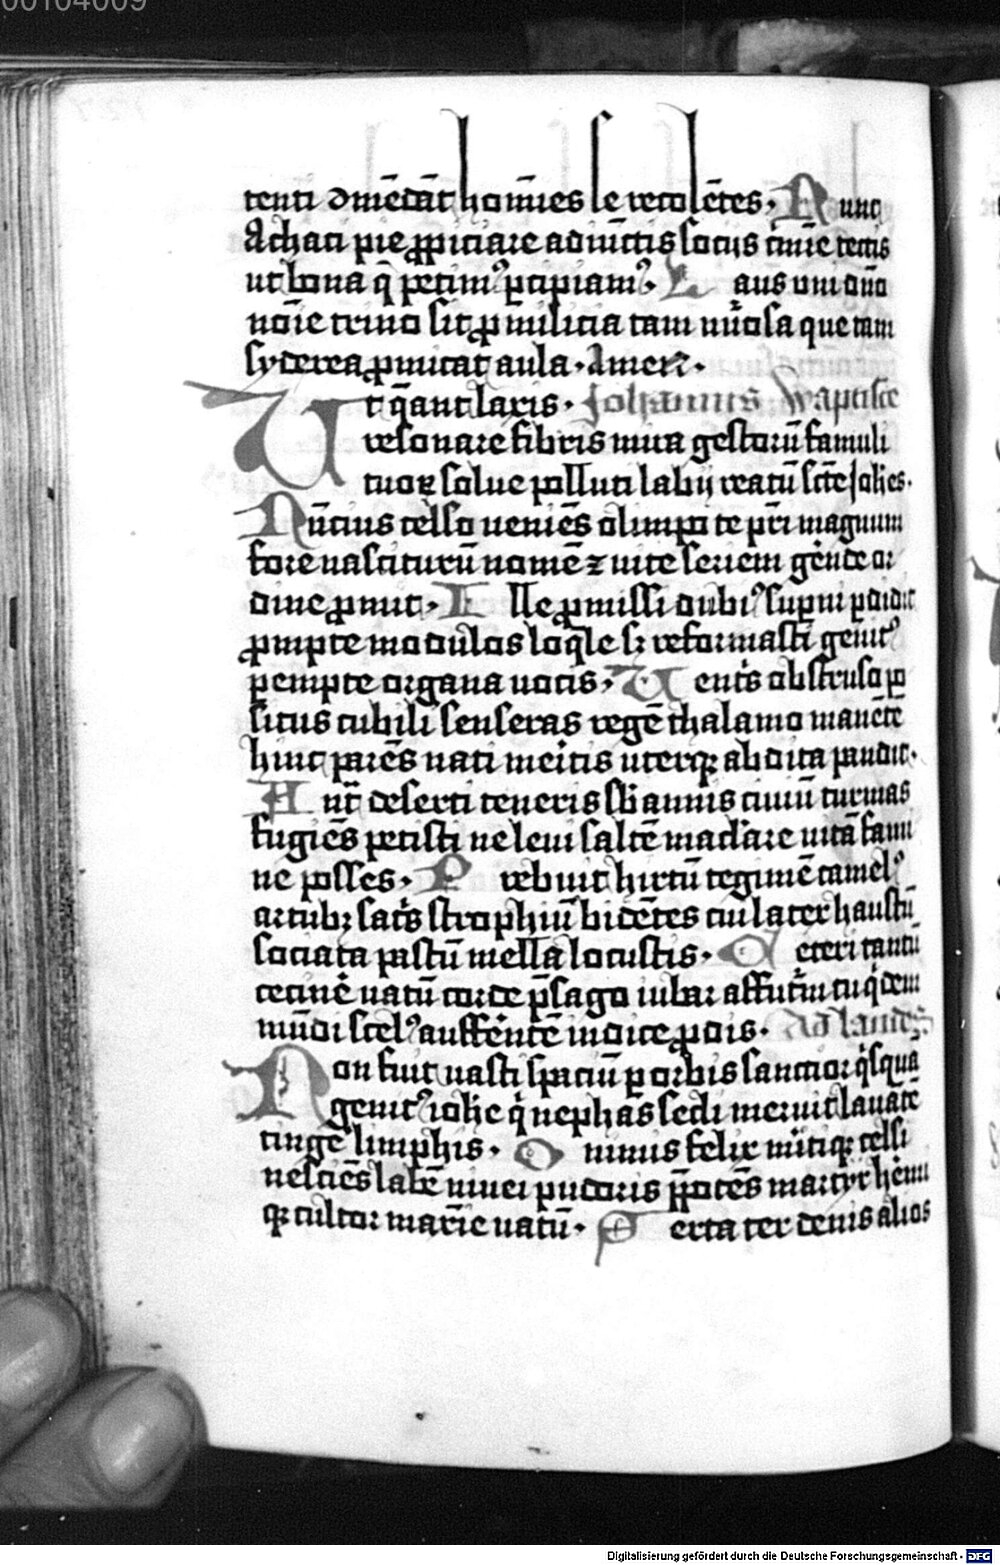 00104009
tenti om̄edāt homīes se recolētes. Nunc
Achaci pie ꝓpiciare adiūctis socijs
ut bona q̄ petim⁹ ꝑcipiam⁹. Laus uni dn̄o
noīe trino sit ꝓ milicia tam que tam
syderea ꝓmicat aula. Amen.
Ut q̄ant laxis. Johannis Baptiste
resonare fibris mira gestorū famuli
tuoꝝ solue polluti labij reatū sctē Johēs.
Nūcius celso ueniēs olimpo te pr̄i magnum
fore nasciturū nomē ⁊ uite seriem gerēde or
dine ꝓmit. Ille ꝓmissi dubi⁹ suꝑni ꝑdidit
ꝓmpte modulos loq̄le sꝫ reformasti genit⁹
ꝑempte organa uocis. Uentͥs obstruso po
situs cubili senseras regē thalamo manētē
hinc parēs nati meͥtis uterqꝫ abdita pandit.
Ant̄ deserti teneris sb̄ annis ciuiū turmas
fugiēs petisti ne leui saltē maclare uitā fami
ne posses. Prebuit hirtū tegimē camel⁹
artubꝫ sacͥs strophiū bidētes cui latex haustū
sociata pastū mella locustis. Ceteri tantū
cecinē uatū corde p̄sago iubar affuturū tu qͥdem
mūdi scel⁹ aufferētē indice ꝓdis. Ad laudes
Non fuit uasti spaciū ꝑ orbis sanctior qͥsquā
genit⁹ iohē qͥ nephas secli meruit lauātē
tingē limphis. O nimis felix mītiqꝫ celsi
nesciēs labē niuei pudoris p̄potēs martyr heremi
qꝫ cultor maxīe uatū. Serta ter denis alios
Digitalisierung gefördert durch die Deutsche Forschungsgemeinschaft - DFG